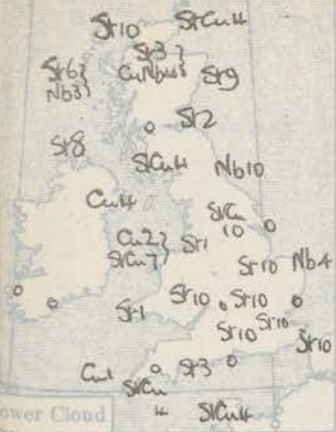 St10 StCu4
St3
St6 CuNb4 St9
Nb3
St2
St8
StCu4 Nb10
Cu4
StCu
10
Cu2 St1
StCu7
St10 Nb4
St10 St10
St1
St10 St10
St10
Cu1 St3
StCu
4 StCu4
ower Cloud